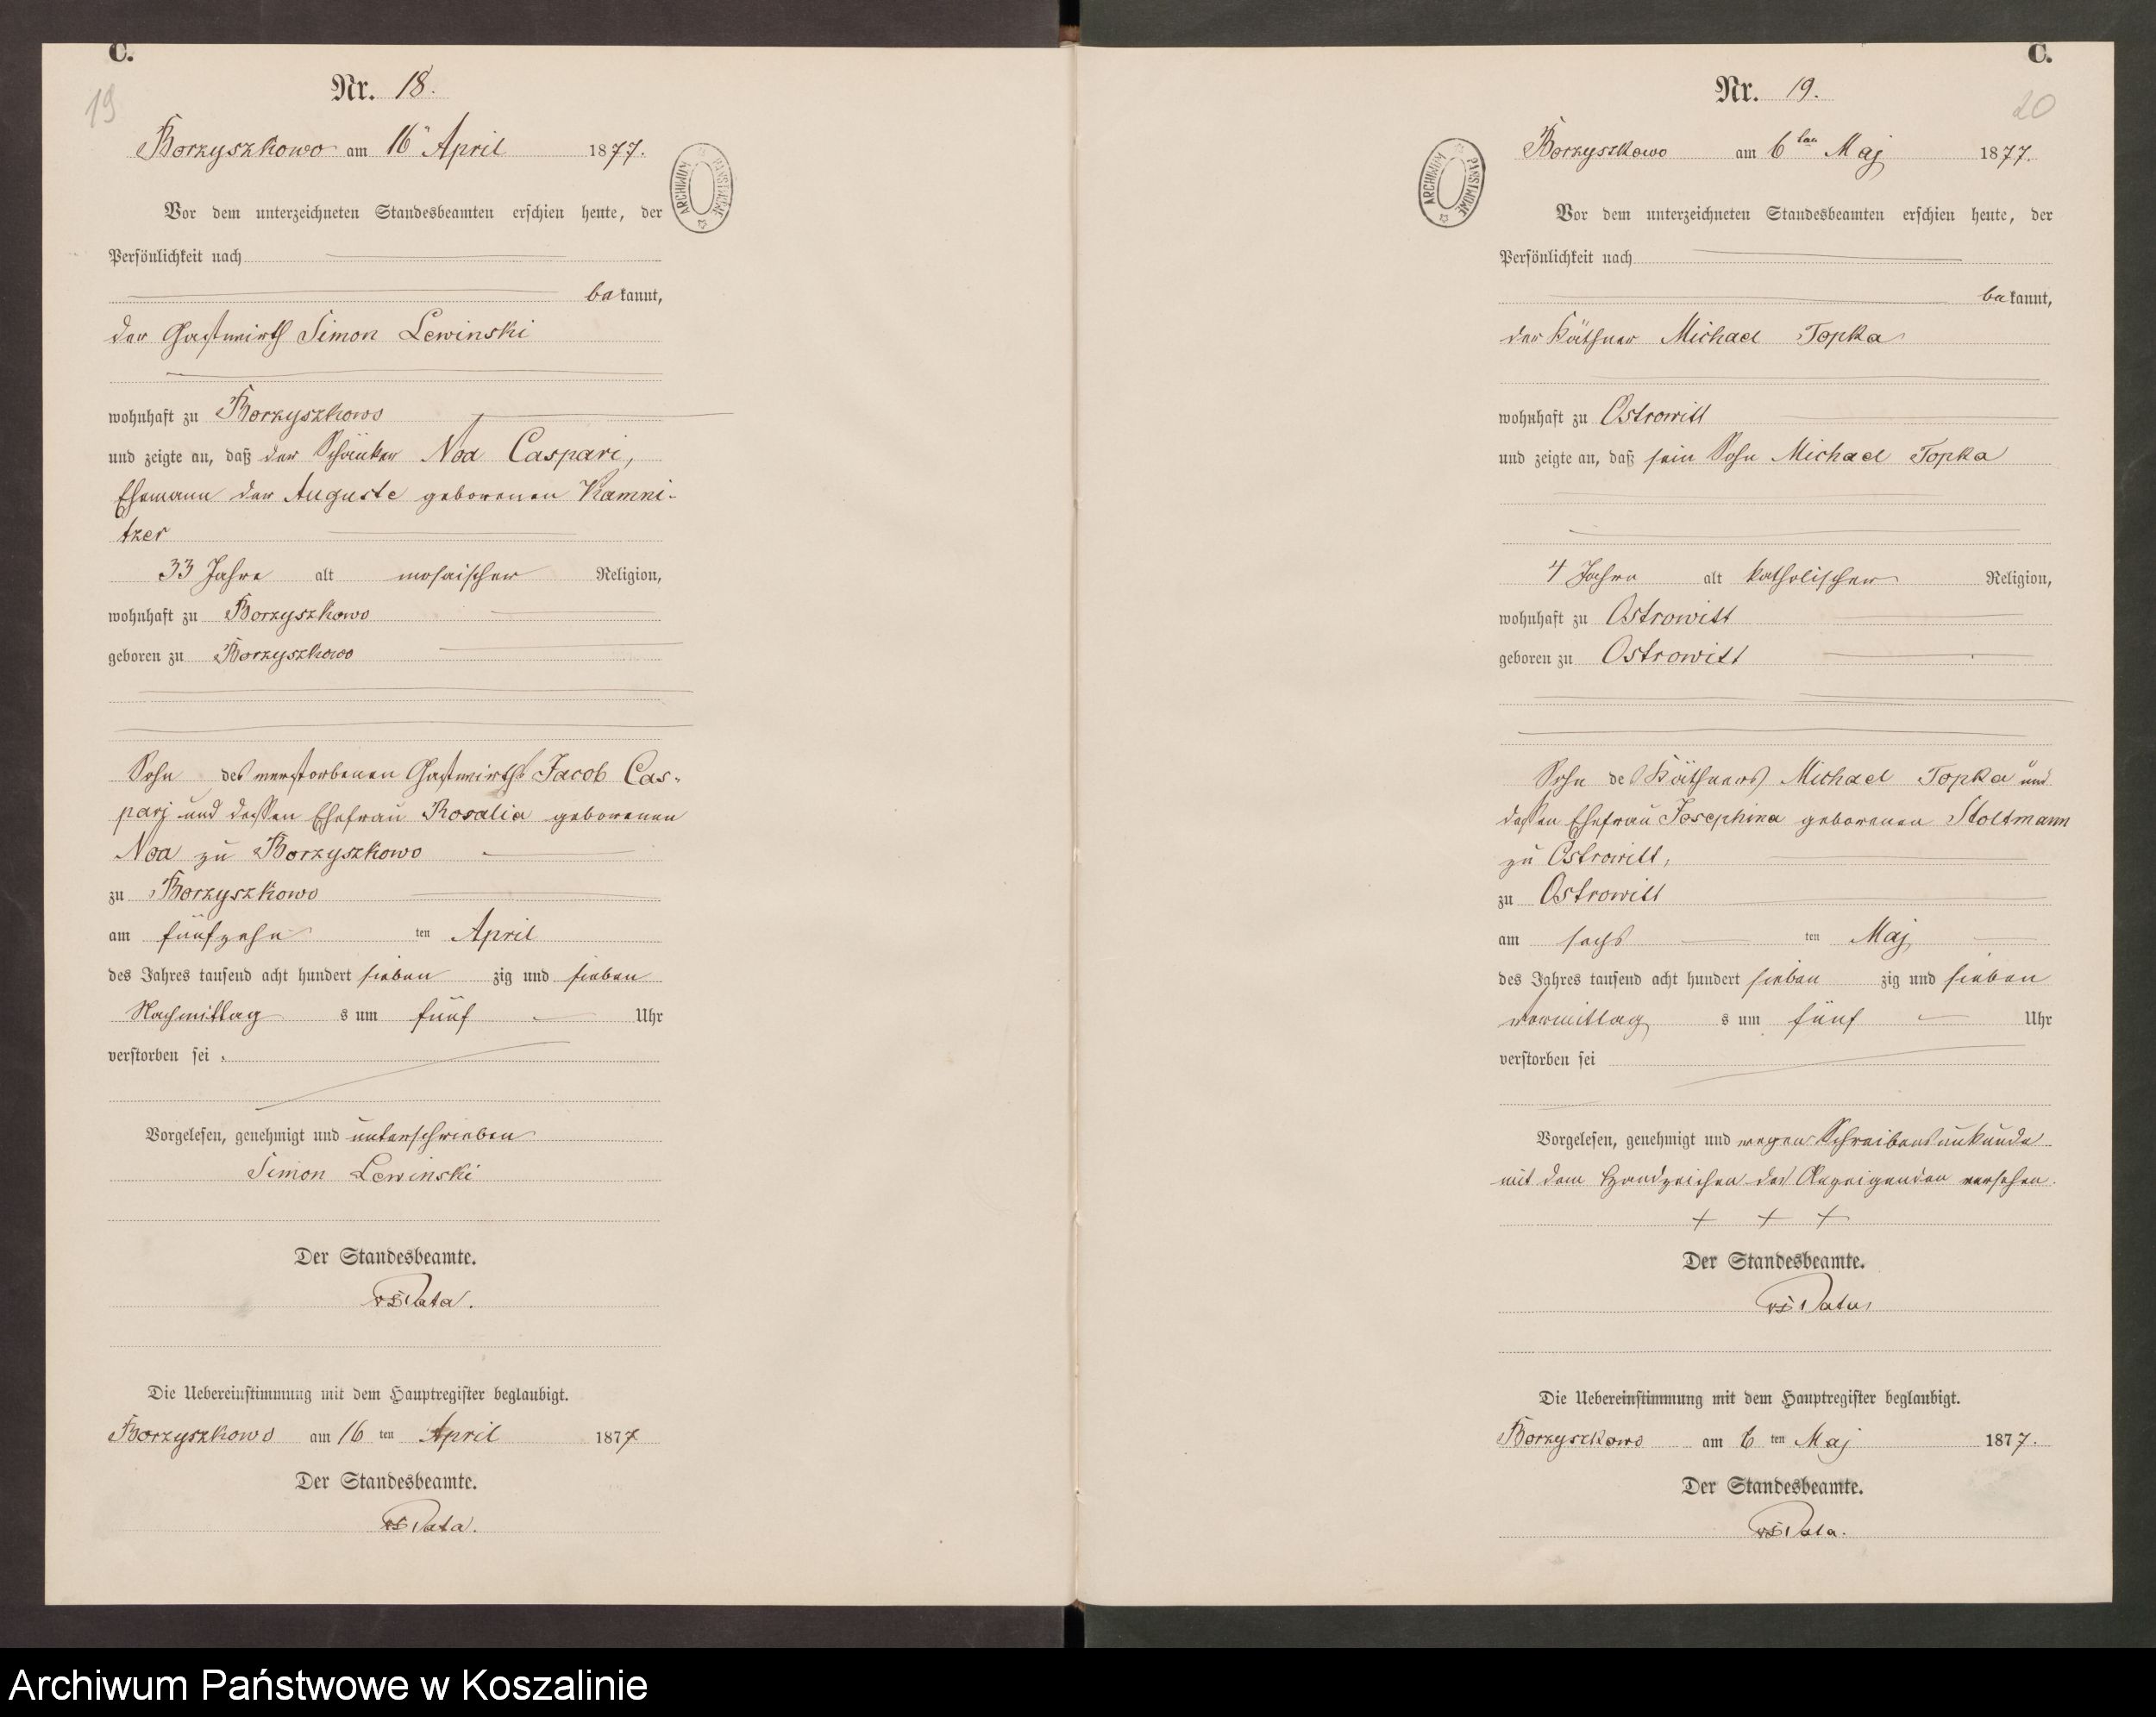 C.
19
Nr. 18.
Borzyszkowo am 16 April 1877.
ARCHIWUM PAŃSTWOWE
Vor dem unterzeichneten Standesbeamten erschien heute, der
Persönlichkeit nach
bekannt,
der Gastwirth Simon Lewinski
wohnhaft zu Borzyszkowo
und zeigte an, daß der Schänker Noa Caspari,
Ehemann der Auguste geborenen Kamni-
tzer
33 Jahre alt mosaischer Religion,
wohnhaft zu Borzyszkowo
geboren zu Borzyszkowo
Sohn des verstorbenen Gastwirths Jacob Cas-
parj und dessen Ehefrau Rosalia geborenen
Noa zu Borzyszkowo
zu Borzyszkowo
am fünfzehn ten April
des Jahres tausend acht hundert sieben zig und sieben
Nachmittag s um fünf Uhr
verstorben sei.
Vorgelesen, genehmigt und unterschrieben
Simon Lewinski
Der Standesbeamte.
Die Uebereinstimmung mit dem Hauptregister beglaubigt.
Borzyszkowo am 16 ten April 1877
Der Standesbeamte.
C.
20
Nr. 19.
Borzyszkowo am 6ten Maj 1877.
ARCHIWUM PAŃSTWOWE
Vor dem unterzeichneten Standesbeamten erschien heute, der
Persönlichkeit nach
bekannt,
der Käthner Michael Topka
wohnhaft zu Ostrowitt
und zeigte an, daß sein Sohn Michael Topka
4 Jahre alt katholischer Religion,
wohnhaft zu Ostrowitt
geboren zu Ostrowitt
Sohn des Käthners Michael Topka und
dessen Ehefrau Josephina geborenen Stoltmann
zu Ostrowitt,
zu Ostrowitt
am sechs ten Maj
des Jahres tausend acht hundert sieben zig und sieben
vormittag s um fünf Uhr
verstorben sei
Vorgelesen, genehmigt und wegen Schreibensunkunde
mit dem Handzeichen des Anzeigenden versehen.
+ + +
Der Standesbeamte.
Die Uebereinstimmung mit dem Hauptregister beglaubigt.
Borzyszkowo am 6 ten Maj 1877.
Der Standesbeamte.
Archiwum Państwowe w Koszalinie